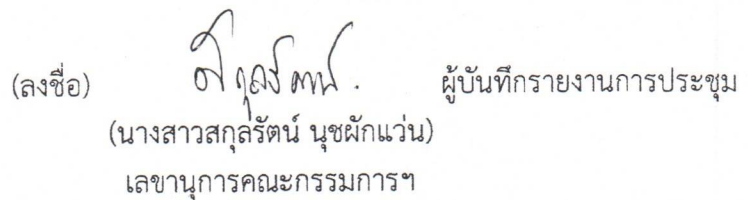 (ลงชื่อ) สกุลรัตน์ ผู้บันทึกรายงานการประชุม
(นางสาวสกุลรัตน์ นุชผักแว่น)
เลขานุการคณะกรรมการฯ